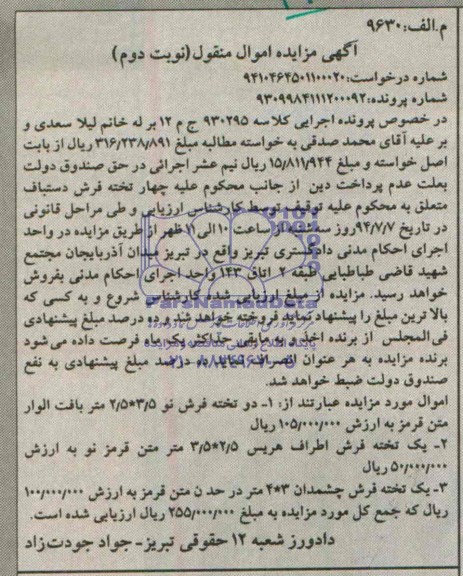 م.الف:۹۶۳۰
آگهی مزایده اموال منقول (نوبت دوم)
شماره درخواست:۹۴۱۰۴۶۴۵۰۱۱۰۰۰۲۰
شماره پرونده:۹۳۰۹۹۸۴۱۱۱۲۰۰۰۹۲
در خصوص پرونده اجرایی کلاسه ۹۳۰۲۹۵ ج م ۱۲ بر له خانم لیلا سعدی و
بر علیه آقای محمد صدقی به خواسته مطالبه مبلغ ۳۱۶/۲۳۸/۸۹۱ ریال از بابت
اصل خواسته و مبلغ ۱۵/۸۱۱/۹۴۴ ریال نیم عشر اجرائی در حق صندوق دولت
بعلت عدم پرداخت دین از جانب محکوم علیه چهار تخته فرش دستباف
متعلق به محکوم علیه توقیف توسط کارشناس ارزیابی و طی مراحل قانونی
در تاریخ ۹۴/۷/۷ روز سه شنبه از ساعت ۱۰ الی ۱۱ ظهر از طریق مزایده در واحد
اجرای احکام مدنی دادگستری تبریز واقع در تبریز میدان آذربایجان مجتمع
شهید قاضی طباطبایی طبقه ۲ اتاق ۱۴۳ واحد اجرای احکام مدنی بفروش
خواهد رسید. مزایده از مبلغ ارزیابی شده کارشناس شروع و به کسی که
بالا ترین مبلغ را پیشنهاد نماید فروخته خواهد شد و ده درصد مبلغ پیشنهادی
فی المجلس از برنده اخذ و به مابقی حداکثر یک ماه فرصت داده می شود
برنده مزایده به هر عنوان انصراف نماید ده درصد مبلغ پیشنهادی به نفع
صندوق دولت ضبط خواهد شد.
اموال مورد مزایده عبارتند از: ۱- دو تخته فرش نو ۳/۵*۲/۵ متر بافت الوار
متن قرمز به ارزش ۱۰۵/۰۰۰/۰۰۰ ریال
۲- یک تخته فرش اطراف هریس ۲/۵*۳/۵ متر متن قرمز نو به ارزش
۵۰/۰۰۰/۰۰۰ ریال
۳- یک تخته فرش چشمدان ۳*۴ متر در حد ن متن قرمز به ارزش ۱۰۰/۰۰۰/۰۰۰
ریال که جمع کل مورد مزایده به مبلغ ۲۵۵/۰۰۰/۰۰۰ ریال ارزیابی شده است.
دادورز شعبه ۱۲ حقوقی تبریز- جواد جودت زاد